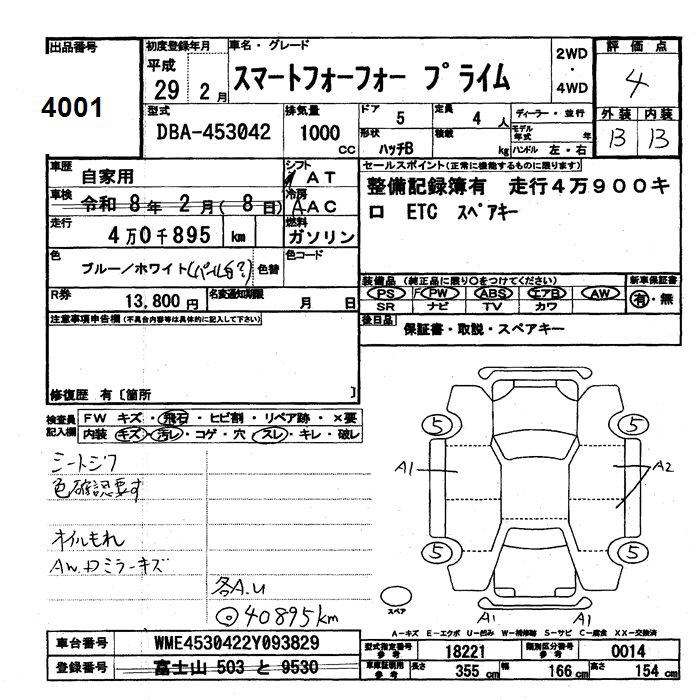 出品番号
4001
初度登録年月
平成
29 2月
車名・グレード
スマートフォーフォー プライム
2WD
・
4WD
評価点
4
外装 内装
B B
型式
DBA-453042
排気量
1000 cc
ドア 5
定員 4 人
形状 ハッチB
積載 kg
ディーラー・並行
モデル年式 年
ハンドル 左・右
車歴 自家用
シフト AT
車検 令和 8年 2月( 8日)
冷房 AAC
走行 4万0千895 km
燃料 ガソリン
色 ブルー/ホワイト(パール色?) 色替
色コード
R券 13,800円
名変通知期限 月 日
セールスポイント(正常に機能するものに限ります)
整備記録簿有 走行4万900キ
ロ ETC スペアキー
装備品 (純正品に限り○をつけてください)
PS PW ABS エアB AW
SR ナビ TV カワ
新車保証書
有・無
後日品 保証書・取説・スペアキー
注意事項申告欄(不具合内容等は具体的に記入して下さい)
修復歴 有〔箇所 〕
検査員記入欄
FW キズ・飛石・ヒビ割・リペア跡・×要
内装 キズ・汚レ・コゲ・穴・スレ・キレ・破レ
シートシワ
色確認要す
オイルもれ
AW.Dミラーキズ
各A.U
40895km
5 5
A1 A2
5 5
スペア
A1 A1
A-キズ E-エクボ U-凹み W-補修跡 S-サビ C-腐食 XX-交換済
車台番号 WME4530422Y093829
登録番号 富士山 503 と 9530
型式指定番号 参考 18221
類別区分番号 参考 0014
車庫証明用 参考 長さ 355 cm 幅 166 cm 高さ 154 cm